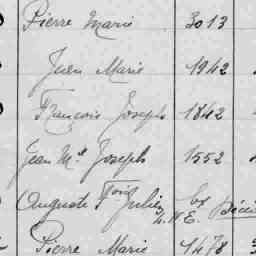 Pierre Marie 3013
Juen Marie 1942
François Joseph 1842
Jean M. Joseph 1552
Auguste Fois Julien
Pierre Marie 1478